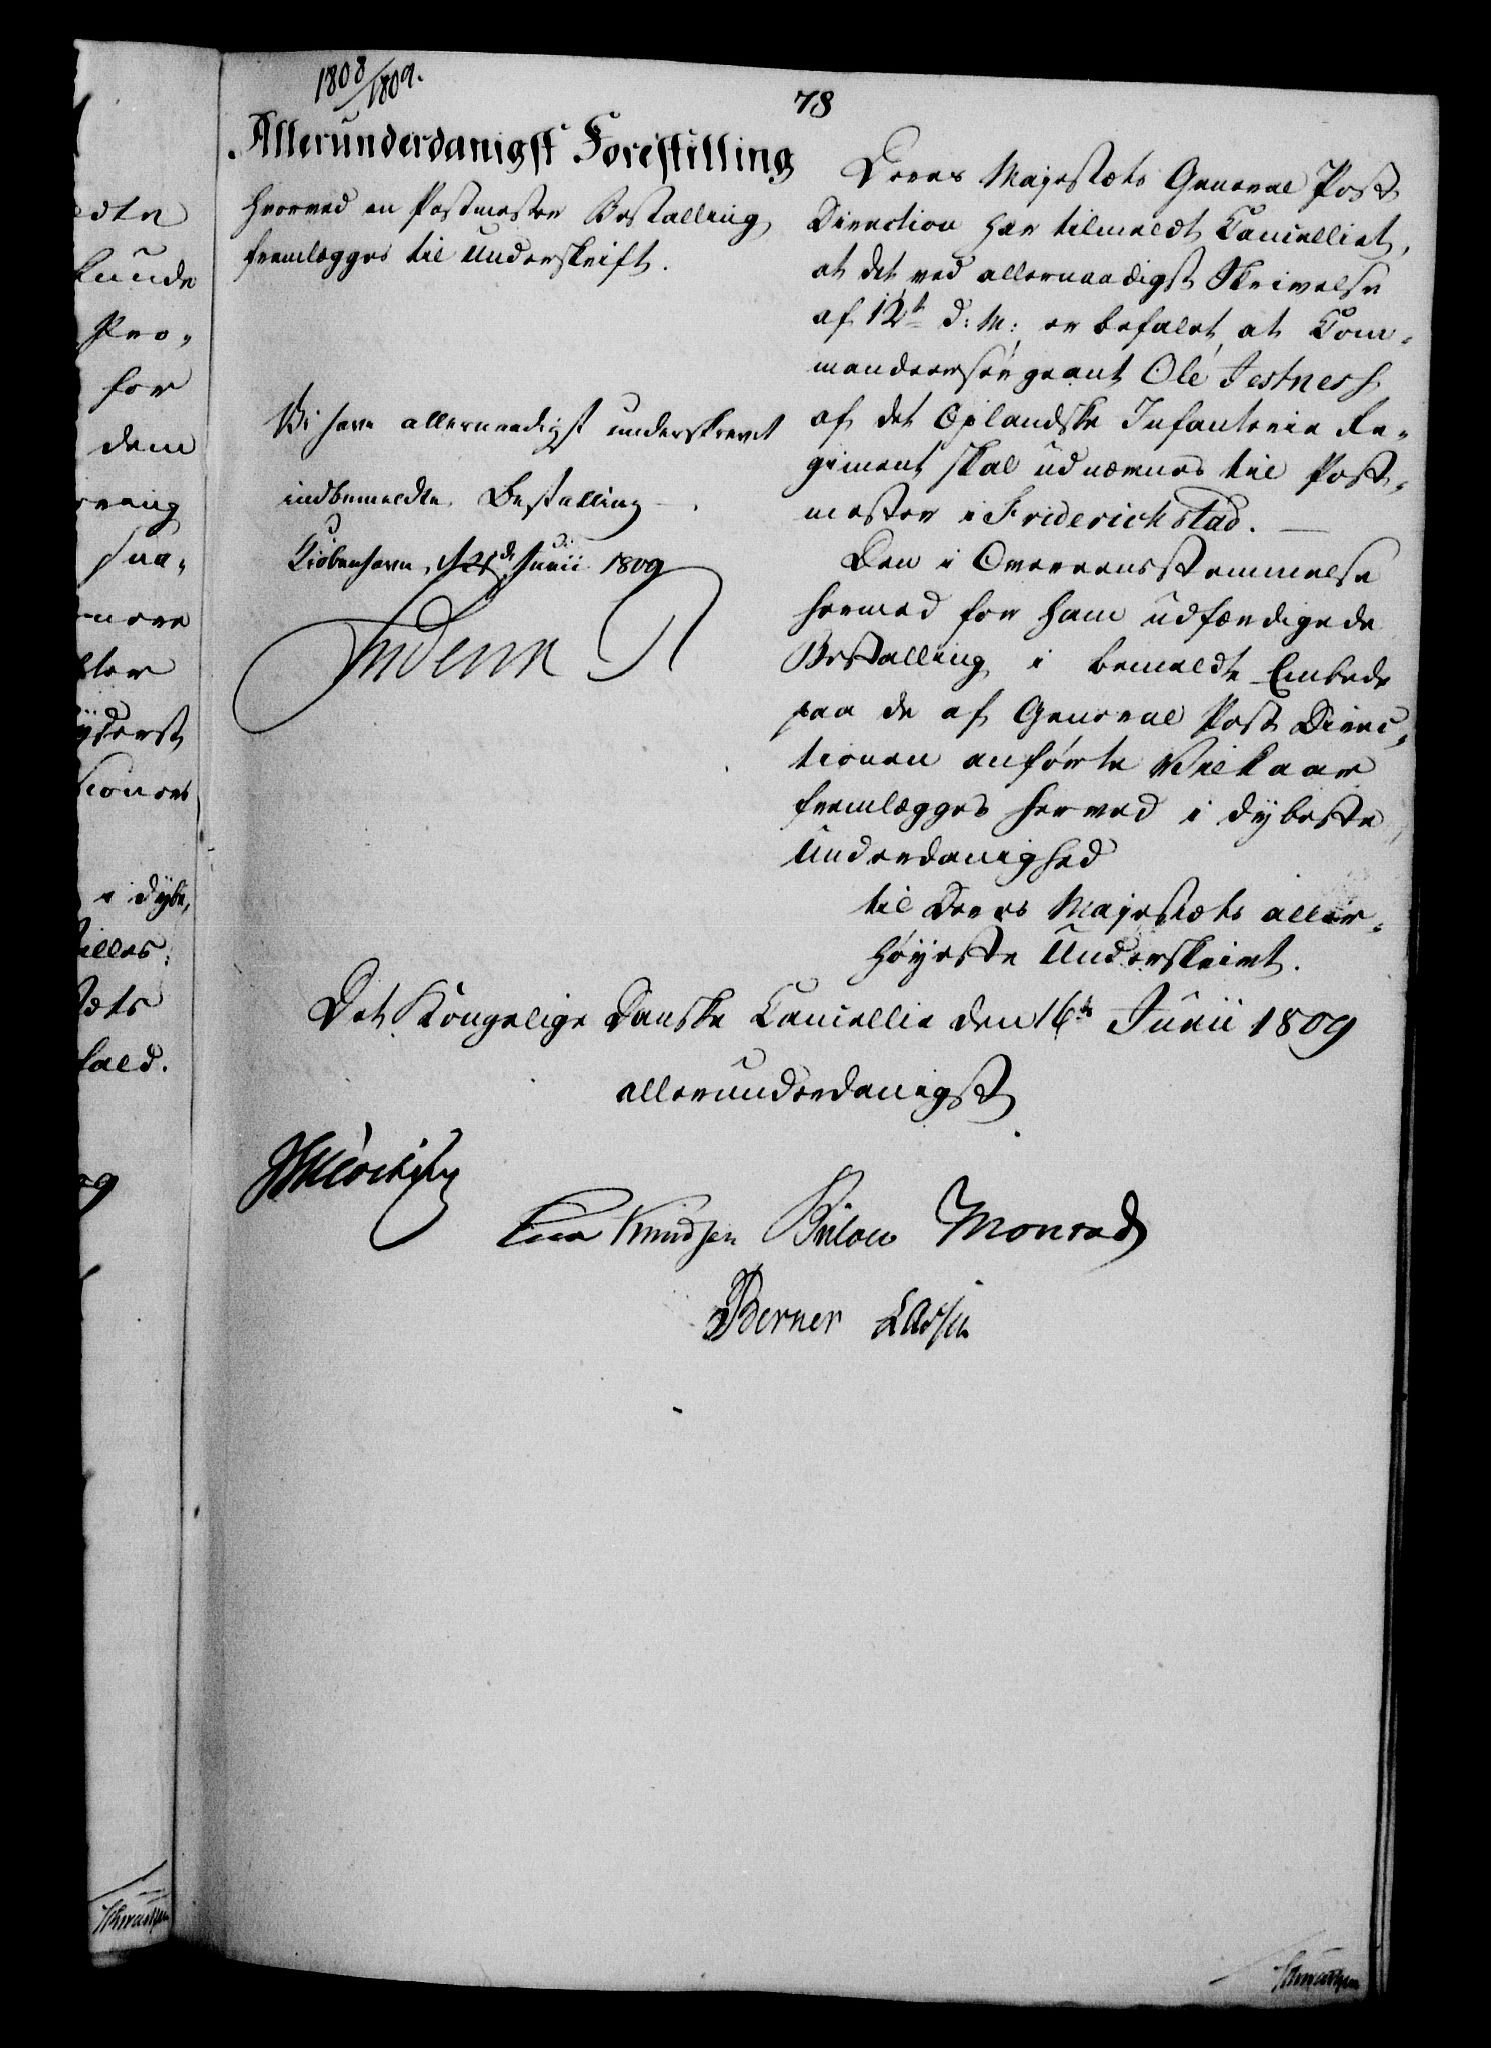 1808/1809.
78
Allerunderdanigst Forestilling
hvorved en Postmester Bestalling
fremlægges til Underskrift.
Vi have allernaadigst underskrevet
indbemeldte Bestalling
Kiöbenhavn, Junii 1809
Frederik R
Deres Majestæts General Post
Direction har tilmeldt Cancelliet,
at det ved allernaadigst Skrivelse
af 12te d: M: er befalet, at Com-
mandeersergeant Ole Jestness
af det Oplandske Infanterie Re-
giment skal udnævnes til Post-
mester i Friderichstad.
Den i Overeensstemmelse
hermed for ham udfærdigede
Bestalling i bemeldte Embede
paa de af General Post Direc-
tionen anførte Vilkaar
fremlægges herved i dybeste
Underdanighed
til Deres Majestæts aller-
høyeste Underskrivt.
Det Kongelige Danske Cancellie den 16de Junii 1809
allerunderdanigst
Knudsen Bülow Monrad
Berner Lassen